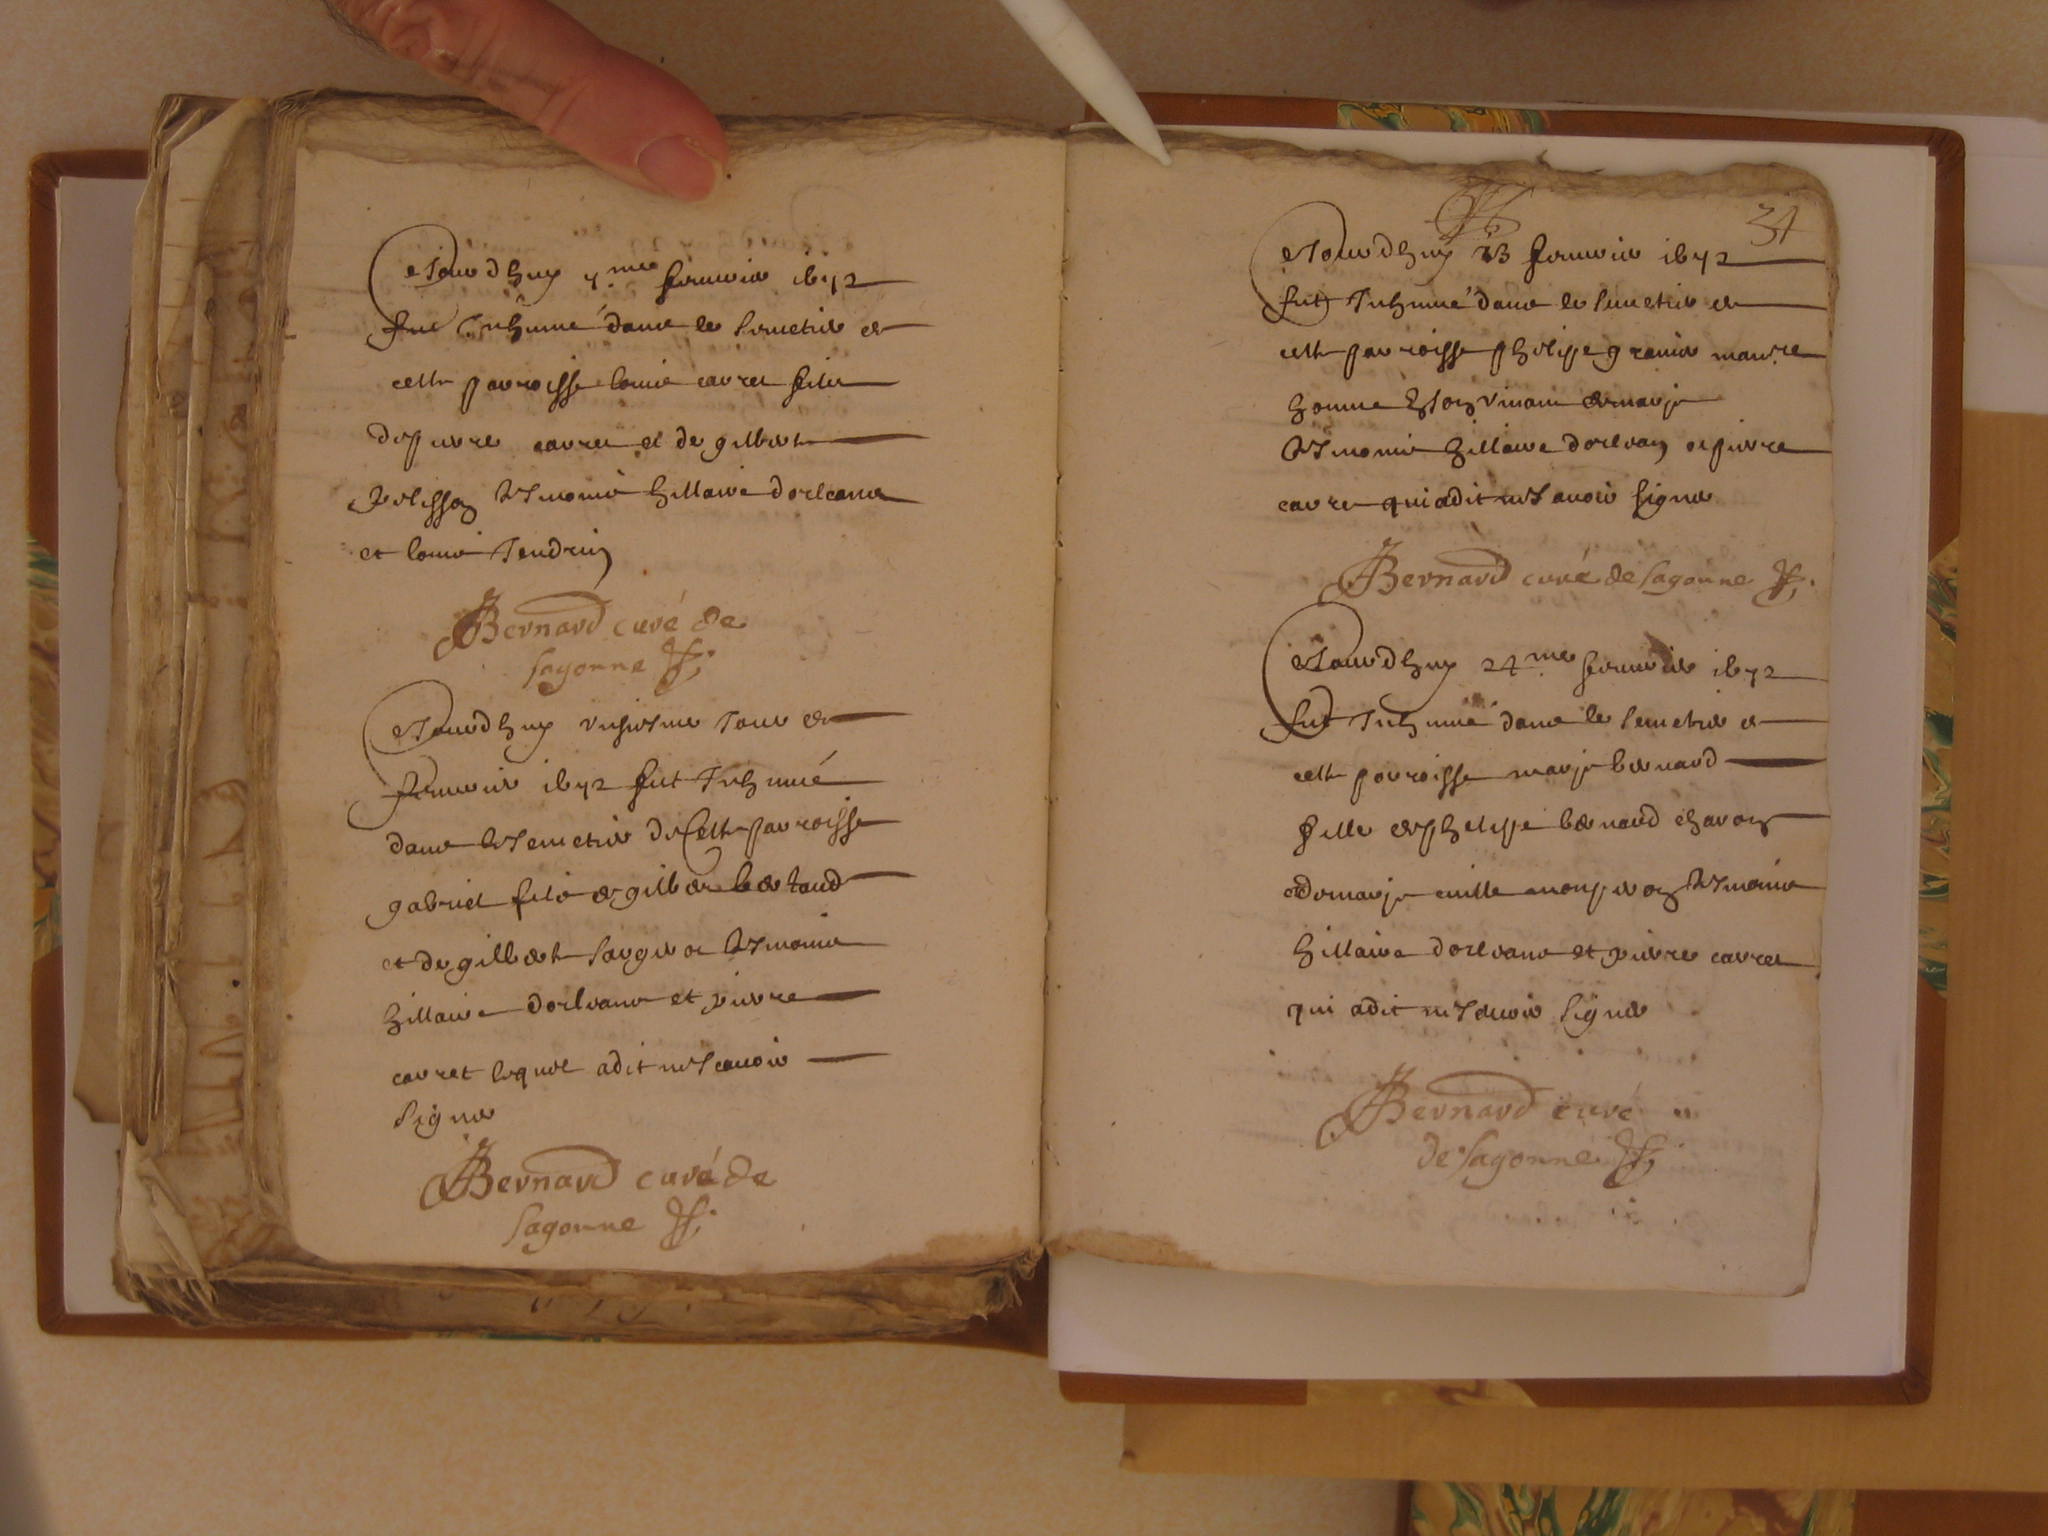 Jourdhuy 7.me feuvrier 1672
fut Inhumé dans le semetier de
cette parroisse louis carret fils
de pierre carret et de gilberte
pelisson tesmoins hillaire dorleans
et louis Jendrin
Bernard curé de
sagonne
Jourdhuy vnsiesme Jour de
feuvrier 1672 fut Inhumé
dans le semetier de cette parroisse
gabriel fils de gilber bertaud
et de gilberte tesmoins
hillaire dorleans et pierre
carret lequel a dit ne scavoir
signer
Bernard curé de
sagonne
34
Jourdhuy 13 feuvrier 1672
fut Inhumé dans le semetier de
cette parroisse phelippe grenier mauvre
homme de marje
tesmoins hillaire dorlean et pierre
carret qui a dit ne savoir signer
Bernard curé de sagonne
Jourdhuy 24.me feuvrier 1672
fut Inhumé dans le semetier de
cette parroisse marje bernard
fille de phelippe bernard charon
et de marje tesmoins
hillaire dorleans et pierre carret
qui a dit ne savoir signer
Bernard curé
de sagonne